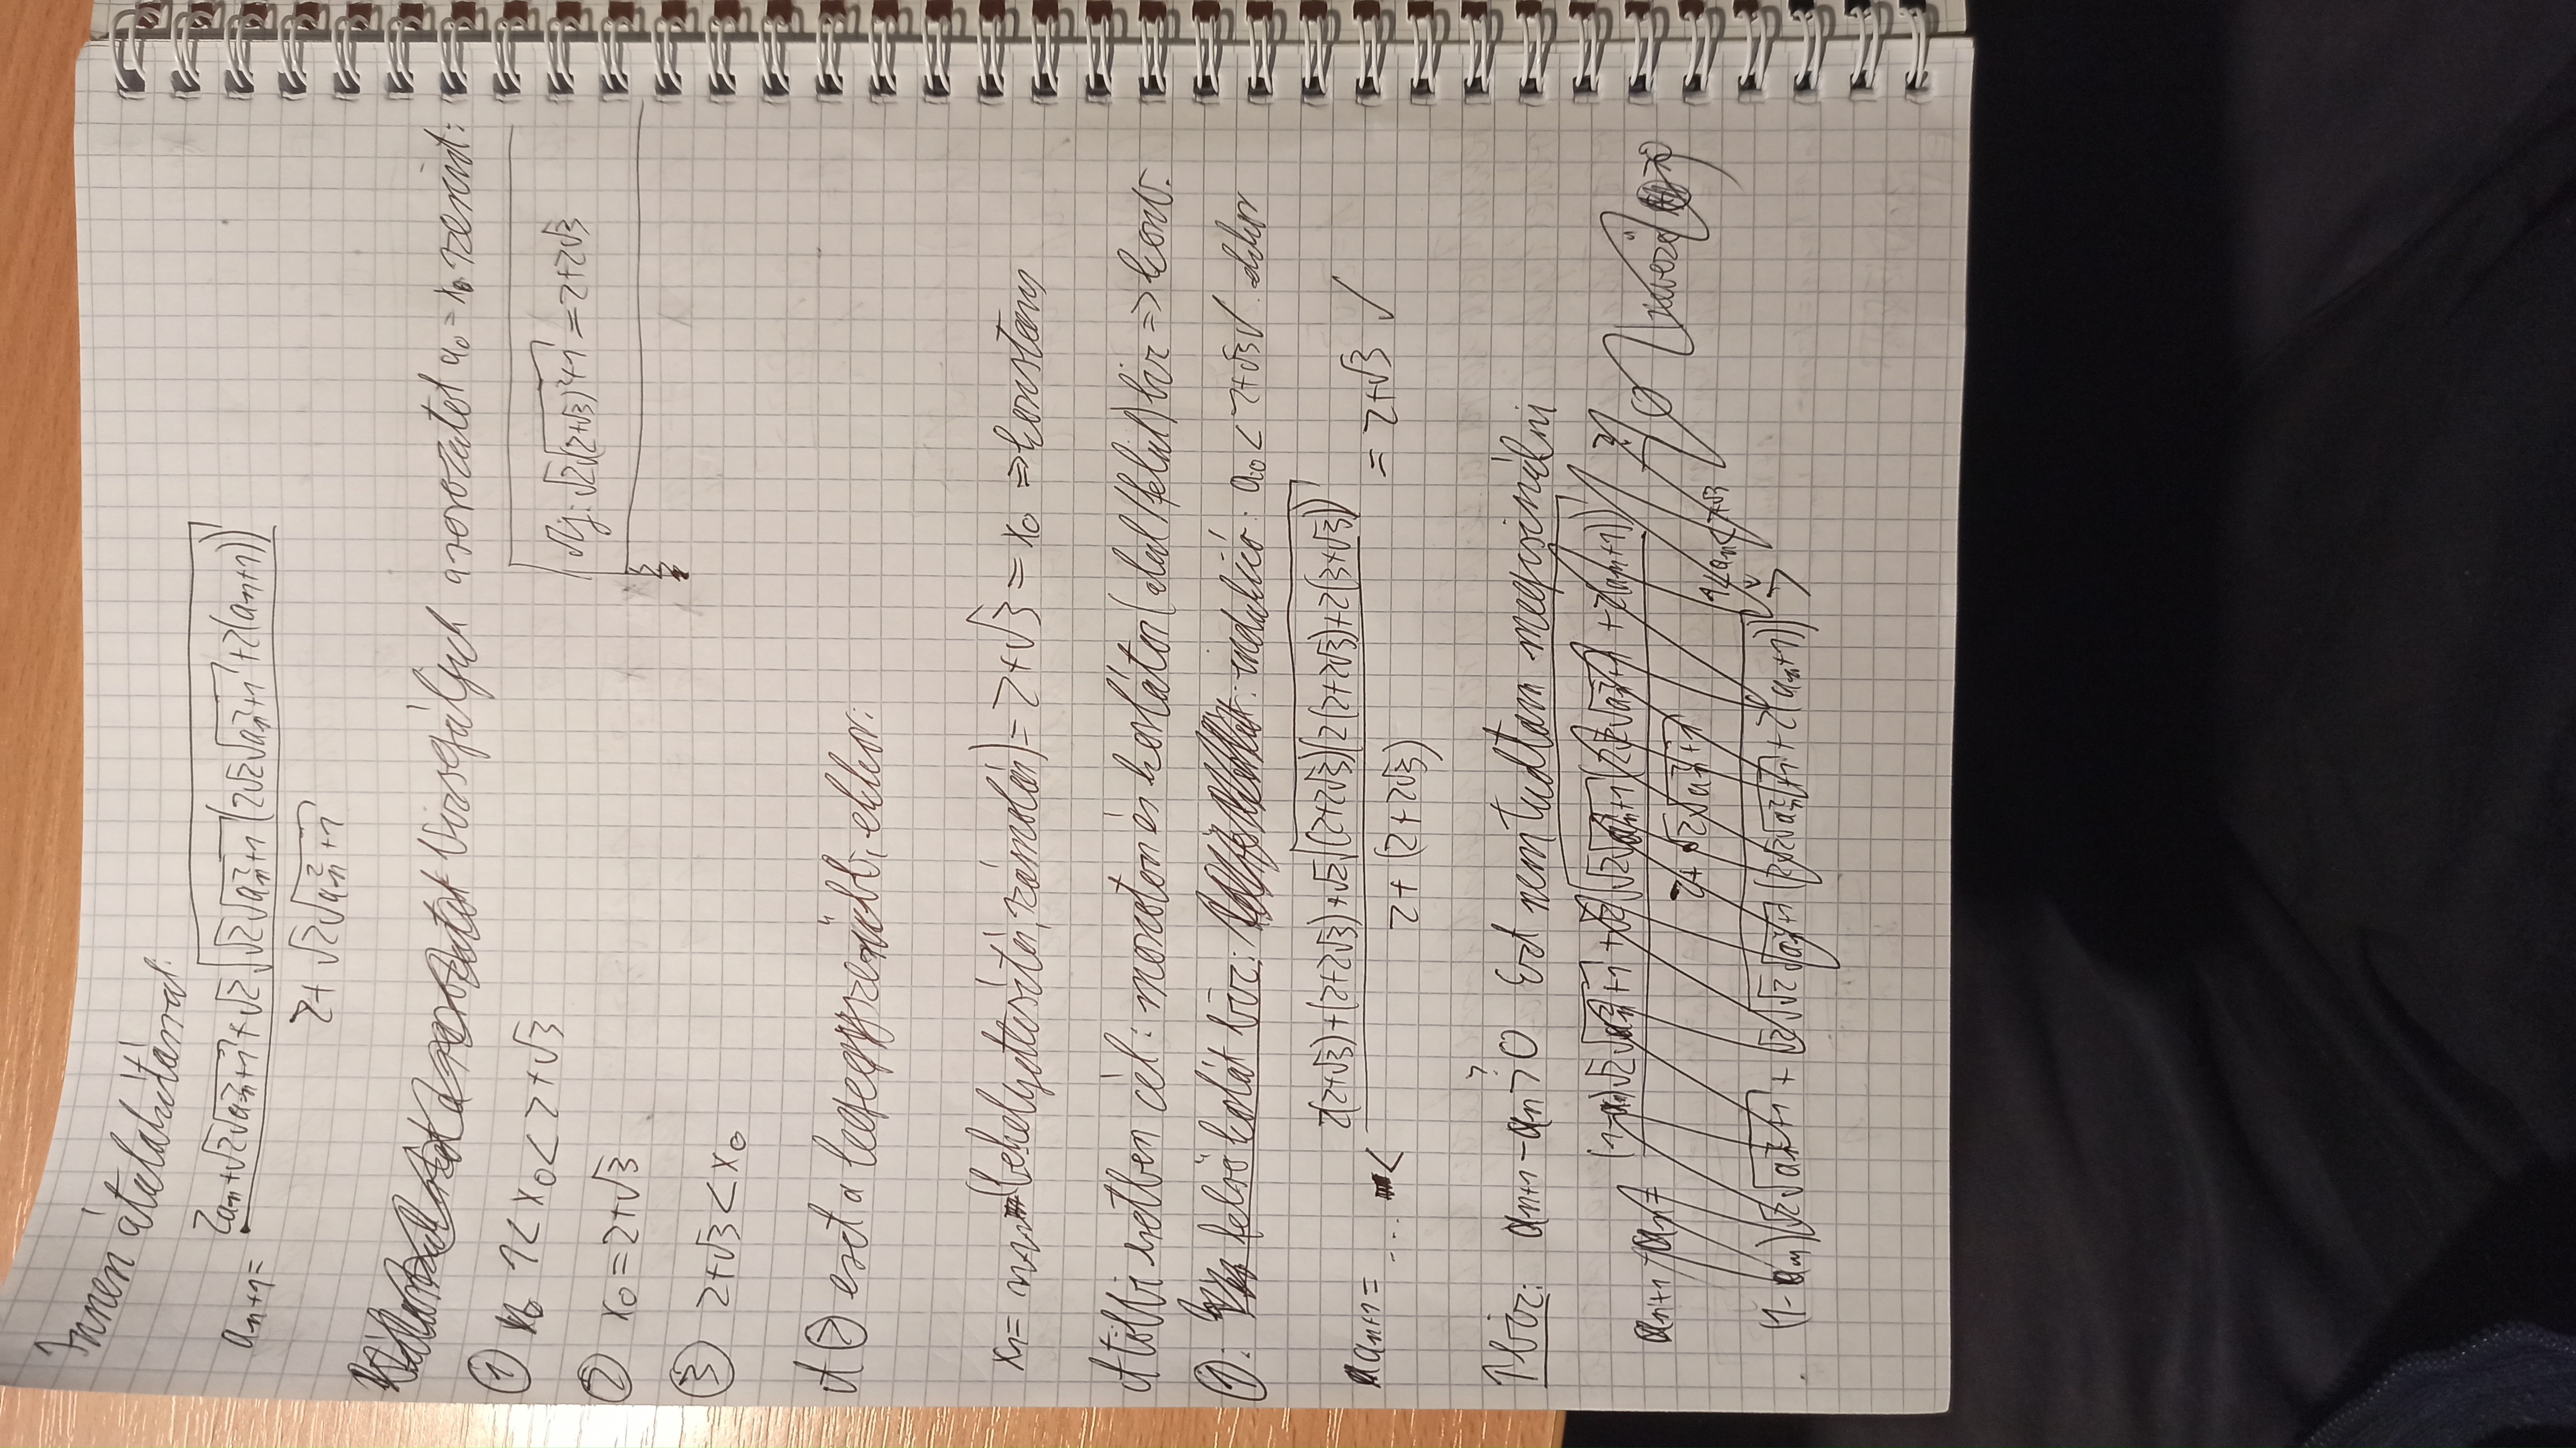 Innen átalakítással:
a_{n+1} = \frac{2a_n+√2√(a_n^2+1) + √2√(√2√(a_n^2+1)(2√2√(a_n^2+1)+2(a_n+1)))}{2+√2√(a_n^2+1)}
Vizsgáljuk a sorozatot a_0 = x_0 szerint:
① 1 < x_0 < 2+√3
② x_0 = 2+√3
③ 2+√3 < x_0
Mj: √2√((2+√3)^2+1) = 2+2√3
A ② eset a legegyszerűbb, ekkor:
x_1 = (behelyettesítés, számolás) = 2+√3 = x_0 ⇒ konstans
A többi esetben cél: monoton és korlátos (alul/felül) biz ⇒ konv.
①: felső kolát biz: indukció: a_0 < 2+√3 ✓. ekkor
a_{n+1} = .... < \frac{2(2+√3)+(2+2√3)+√2√((2+2√3)(2(2+2√3)+2(3+√3)))}{2+(2+2√3)} = 2+√3 ✓
↑ biz: a_{n+1} - a_n >^? 0 Ezt nem tudtam megcsinálni
a_{n+1} - a_n = \frac{(1-a_n)√2√(a_n^2+1) + √2√(√2√(a_n^2+1)(2√2√(a_n^2+1)+2(a_n+1)))}{2+√2√(a_n^2+1)} >^? 0
1 < a_n < 2+√3
(1-a_n)√2√(a_n^2+1) + √2√(√2√(a_n^2+1)(2√2√(a_n^2+1)+2(a_n+1))) >